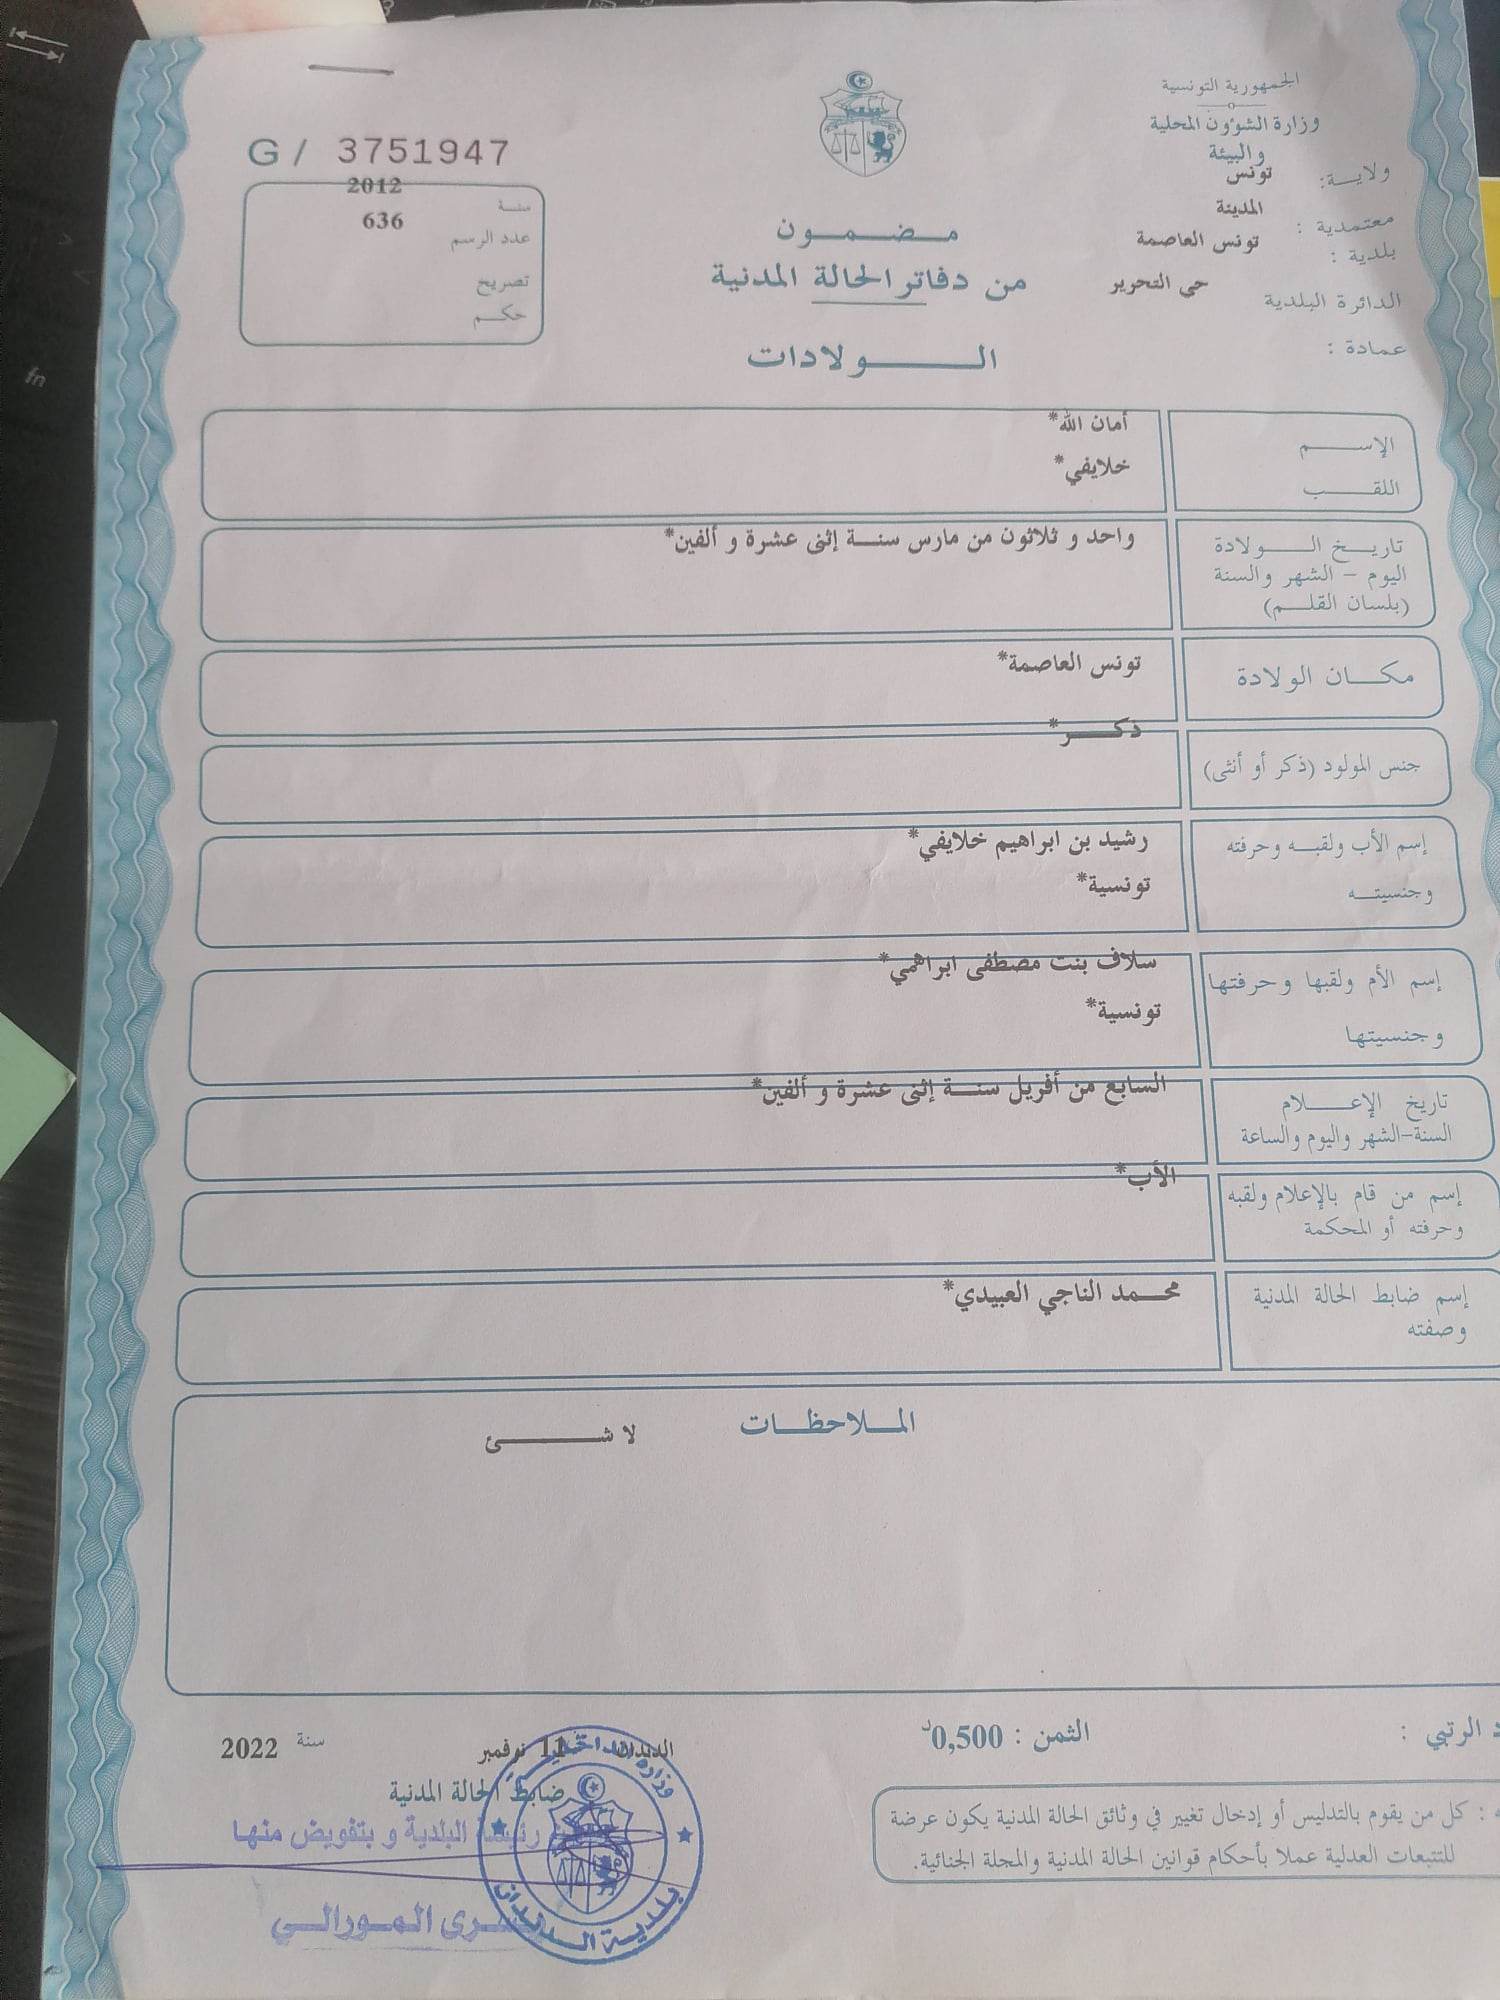 الجمهورية التونسية
وزارة الشؤون المحلية
والبيئة
ولاية: تونس
معتمدية : المدينة
بلدية : تونس العاصمة
الدائرة البلدية حي التحرير
عمادة :
G / 3751947
سنة 2012
عدد الرسم 636
تصريح
حكم
مضمون
من دفاتر الحالة المدنية
الولادات
الإسم أمان الله*
اللقب خلايفي*
تاريخ الولادة واحد و ثلاثون من مارس سنة إثنى عشرة و ألفين*
اليوم - الشهر والسنة
(بلسان القلم)
مكان الولادة تونس العاصمة*
جنس المولود (ذكر أو أنثى) ذكر*
إسم الأب ولقبه وحرفته رشيد بن ابراهيم خلايفي*
وجنسيته تونسية*
إسم الأم ولقبها وحرفتها سلاف بنت مصطفى ابراهمي*
وجنسيتها تونسية*
تاريخ الإعلام السابع من أفريل سنة إثنى عشرة و ألفين*
السنة-الشهر واليوم والساعة
إسم من قام بالإعلام ولقبه الأب*
وحرفته أو المحكمة
إسم ضابط الحالة المدنية محمد الناجي العبيدي*
وصفته
الملاحظات
لا شئ
الرتبي :
الثمن : 0,500د
الدندان 11 نوفمبر سنة 2022
ضابط الحالة المدنية
رئيسة البلدية و بتفويض منها
المورالي
بلدية الدندان
: كل من يقوم بالتدليس أو إدخال تغيير في وثائق الحالة المدنية يكون عرضة
للتتبعات العدلية عملا بأحكام قوانين الحالة المدنية والمجلة الجنائية.
fn